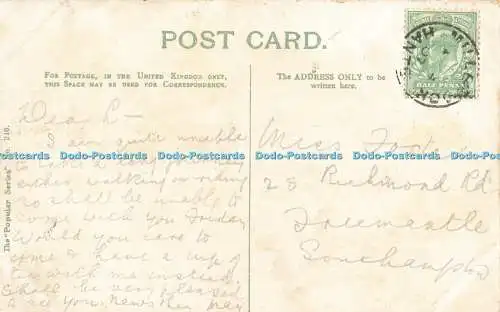 POST CARD.
FOR POSTAGE, IN THE UNITED KINGDOM ONLY,
THIS SPACE MAY BE USED FOR CORRESPONDENCE.
The ADDRESS ONLY to be
written here.
HALF PENNY
The "Popular Series" No. 210.
Dear L—
I am quite unable
to take a long journey
either walking or riding
so shall be unable to
come with you Friday
Would you care to
come & have a cup of
tea with me instead.
Shall be very pleased
to see you
Miss
25 Richmond Rd
Freemantle
Southampton
Dodo-Postcards Dodo-Postcards Dodo-Postcards Dodo-Postcards Dodo-Postcards
Dodo-Postcards Dodo-Postcards Dodo-Postcards Dodo-Postcards Dodo-Postcards